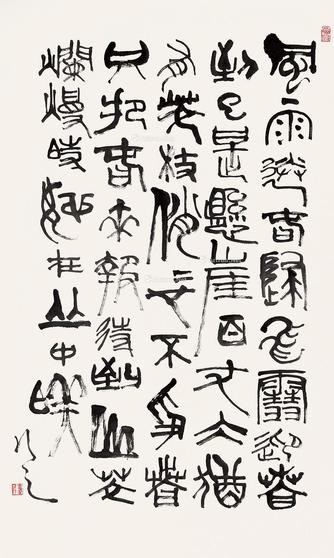 風雨送春歸飛雪迎春
到已是懸崖百丈冰猶
有花枝俏〻也不爭春
只把春來報待到山花
爛熳時她在丛中咲